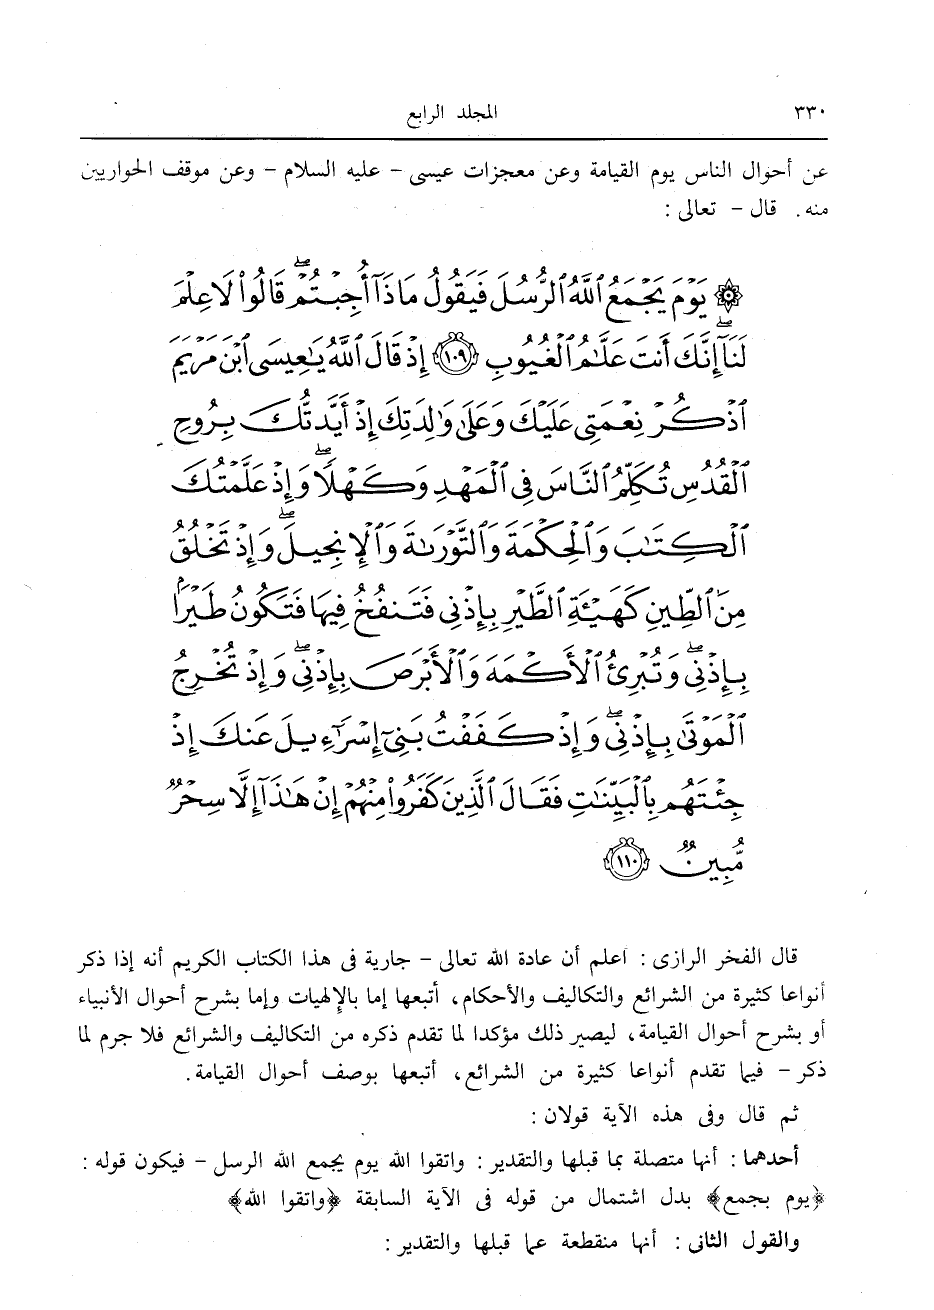 ٣٣٠ المجلد الرابع
عن أحوال الناس يوم القيامة وعن معجزات عيسى - عليه السلام - وعن موقف الحواريين
منه. قال - تعالى :
۞ يَوْمَ يَجْمَعُ ٱللَّهُ ٱلرُّسُلَ فَيَقُولُ مَاذَآ أُجِبْتُمْ ۖ قَالُوا۟ لَا عِلْمَ
لَنَآ ۖ إِنَّكَ أَنتَ عَلَّـٰمُ ٱلْغُيُوبِ ١٠٩ إِذْ قَالَ ٱللَّهُ يَـٰعِيسَى ٱبْنَ مَرْيَمَ
ٱذْكُرْ نِعْمَتِى عَلَيْكَ وَعَلَىٰ وَٰلِدَتِكَ إِذْ أَيَّدتُّكَ بِرُوحِ
ٱلْقُدُسِ تُكَلِّمُ ٱلنَّاسَ فِى ٱلْمَهْدِ وَكَهْلًا ۖ وَإِذْ عَلَّمْتُكَ
ٱلْكِتَـٰبَ وَٱلْحِكْمَةَ وَٱلتَّوْرَىٰةَ وَٱلْإِنجِيلَ ۖ وَإِذْ تَخْلُقُ
مِنَ ٱلطِّينِ كَهَيْـَٔةِ ٱلطَّيْرِ بِإِذْنِى فَتَنفُخُ فِيهَا فَتَكُونُ طَيْرًۢا
بِإِذْنِى ۖ وَتُبْرِئُ ٱلْأَكْمَهَ وَٱلْأَبْرَصَ بِإِذْنِى ۖ وَإِذْ تُخْرِجُ
ٱلْمَوْتَىٰ بِإِذْنِى ۖ وَإِذْ كَفَفْتُ بَنِىٓ إِسْرَٰٓءِيلَ عَنكَ إِذْ
جِئْتَهُم بِٱلْبَيِّنَـٰتِ فَقَالَ ٱلَّذِينَ كَفَرُوا۟ مِنْهُمْ إِنْ هَـٰذَآ إِلَّا سِحْرٌ
مُّبِينٌ ١١٠
قال الفخر الرازى : اعلم أن عادة الله تعالى - جارية فى هذا الكتاب الكريم أنه إذا ذكر
أنواعا كثيرة من الشرائع والتكاليف والأحكام، أتبعها إما بالإلهيات وإما بشرح أحوال الأنبياء
أو بشرح أحوال القيامة، ليصير ذلك مؤكدا لما تقدم ذكره من التكاليف والشرائع فلا جرم لما
ذكر - فيما تقدم أنواعا كثيرة من الشرائع، أتبعها بوصف أحوال القيامة.
ثم قال وفى هذه الآية قولان :
أحدهما : أنها متصلة بما قبلها والتقدير : واتقوا الله يوم يجمع الله الرسل - فيكون قوله :
﴿يوم يجمع﴾ بدل اشتمال من قوله فى الآية السابقة ﴿واتقوا الله﴾
والقول الثانى : أنها منقطعة عما قبلها والتقدير :